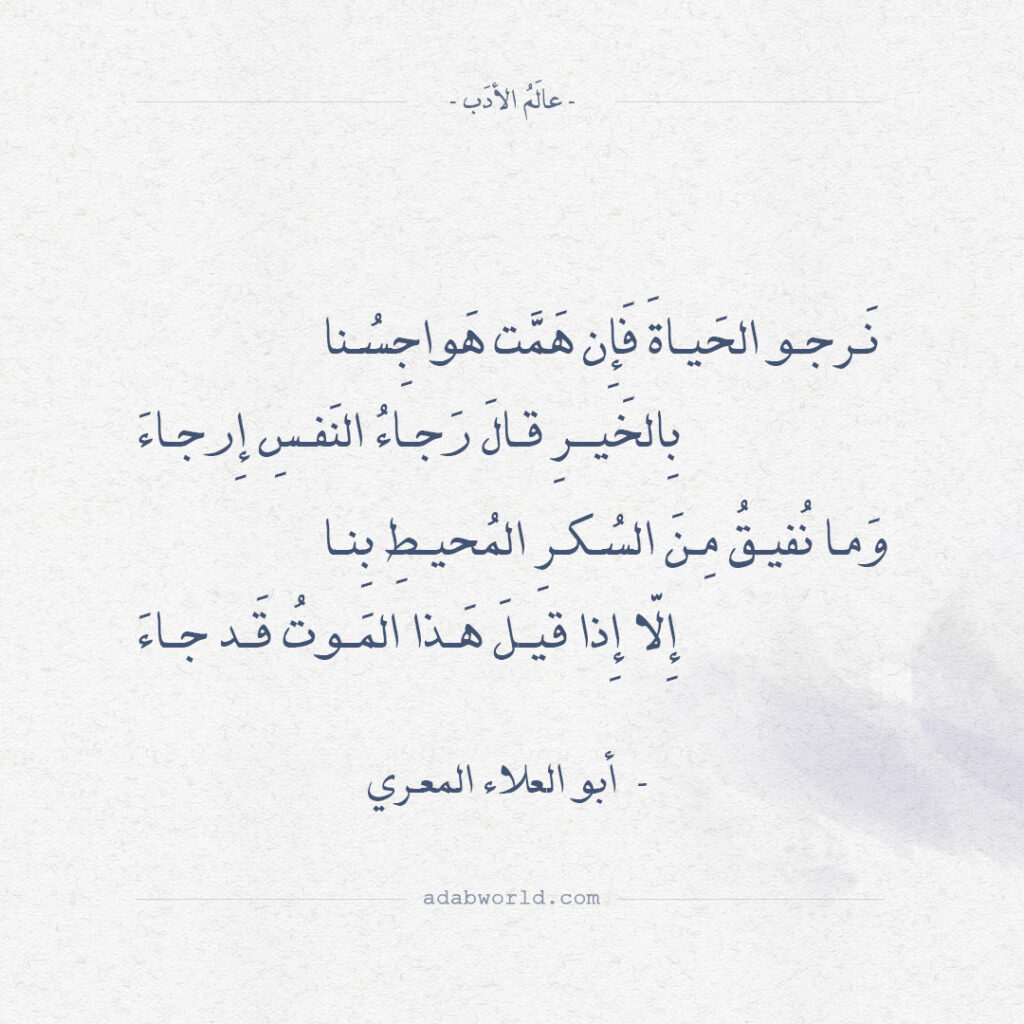 - عالَمُ الأدَب -
نَرجو الحَياةَ فَإِن هَمَّت هَواجِسُنا
بِالخَيرِ قالَ رَجاءُ النَفسِ إِرجاءَ
وَما نُفيقُ مِنَ السُكرِ المُحيطِ بِنا
إِلّا إِذا قيلَ هَذا المَوتُ قَد جاءَ
- أبو العلاء المعري
adabworld.com